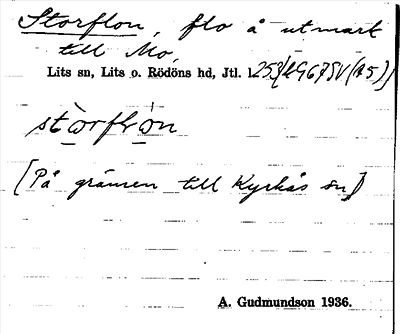 Storflon, flo å utmark
till Mo,
Lits sn, Lits o. Rödöns hd, Jtl.
stòrflòn
[På gränsen till Kyrkås sn]
A. Gudmundson 1936.